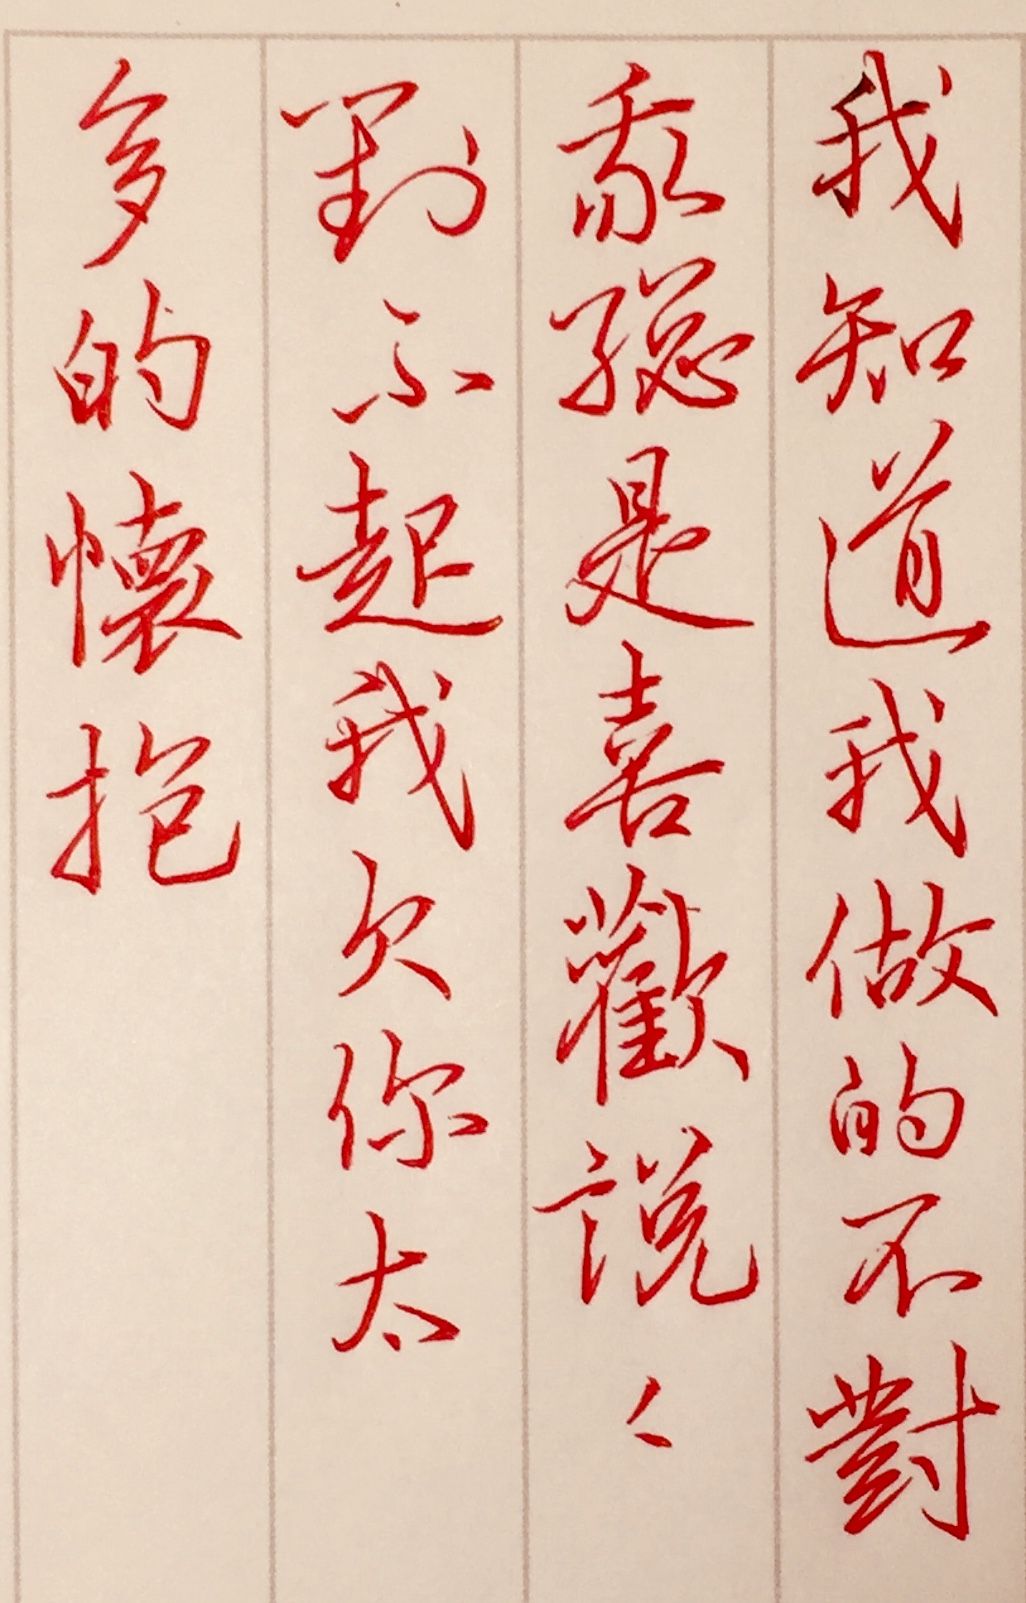 我知道我做的不對
我總是喜歡說〻
對不起我欠你太
多的懷抱